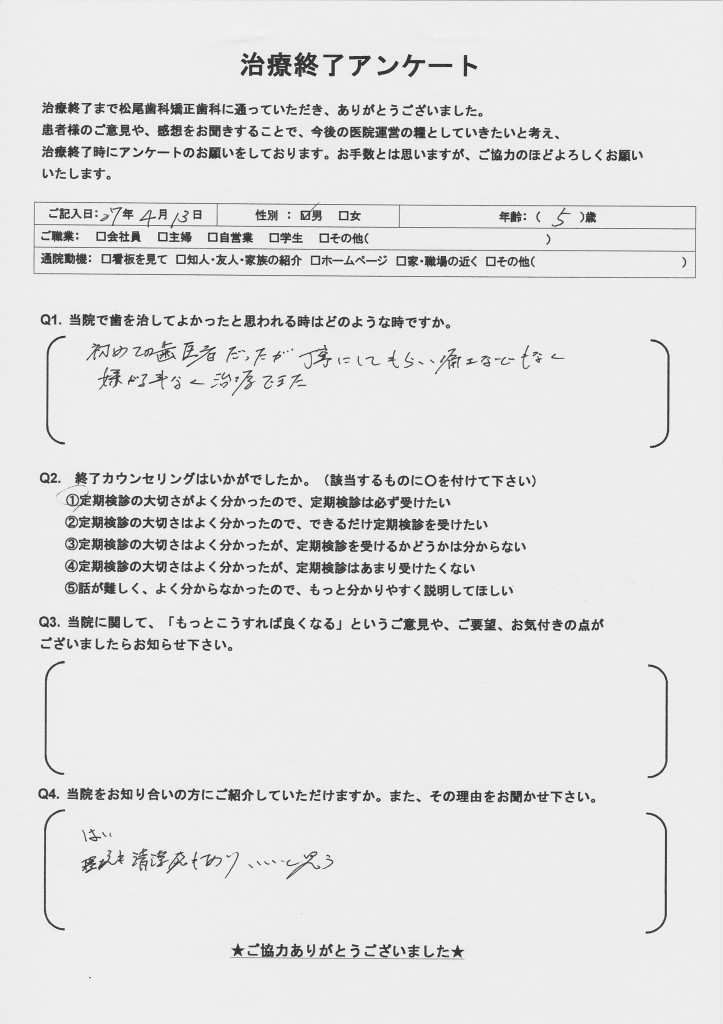 治療終了アンケート
治療終了まで松尾歯科矯正歯科に通っていただき、ありがとうございました。
患者様のご意見や、感想をお聞きすることで、今後の医院運営の糧としていきたいと考え、
治療終了時にアンケートのお願いをしております。お手数とは思いますが、ご協力のほどよろしくお願い
いたします。
ご記入日：27年 4月 13日 性別 ： ☑男 □女 年齢：（ 5 ）歳
ご職業： □会社員 □主婦 □自営業 □学生 □その他（ ）
通院動機：□看板を見て □知人・友人・家族の紹介 □ホームページ □家・職場の近く □その他（ ）
Q1. 当院で歯を治してよかったと思われる時はどのような時ですか。
初めての歯医者だったが丁寧にしてもらい痛エなどもなく
嫌がる事なく治療できた
Q2. 終了カウンセリングはいかがでしたか。（該当するものに〇を付けて下さい）
①定期検診の大切さがよく分かったので、定期検診は必ず受けたい
②定期検診の大切さはよく分かったので、できるだけ定期検診を受けたい
③定期検診の大切さはよく分かったが、定期検診を受けるかどうかは分からない
④定期検診の大切さはよく分かったが、定期検診はあまり受けたくない
⑤話が難しく、よく分からなかったので、もっと分かりやすく説明してほしい
Q3. 当院に関して、「もっとこうすれば良くなる」というご意見や、ご要望、お気付きの点が
ございましたらお知らせ下さい。
Q4. 当院をお知り合いの方にご紹介していただけますか。また、その理由をお聞かせ下さい。
はい
清潔感もあり いいと思う
★ご協力ありがとうございました★